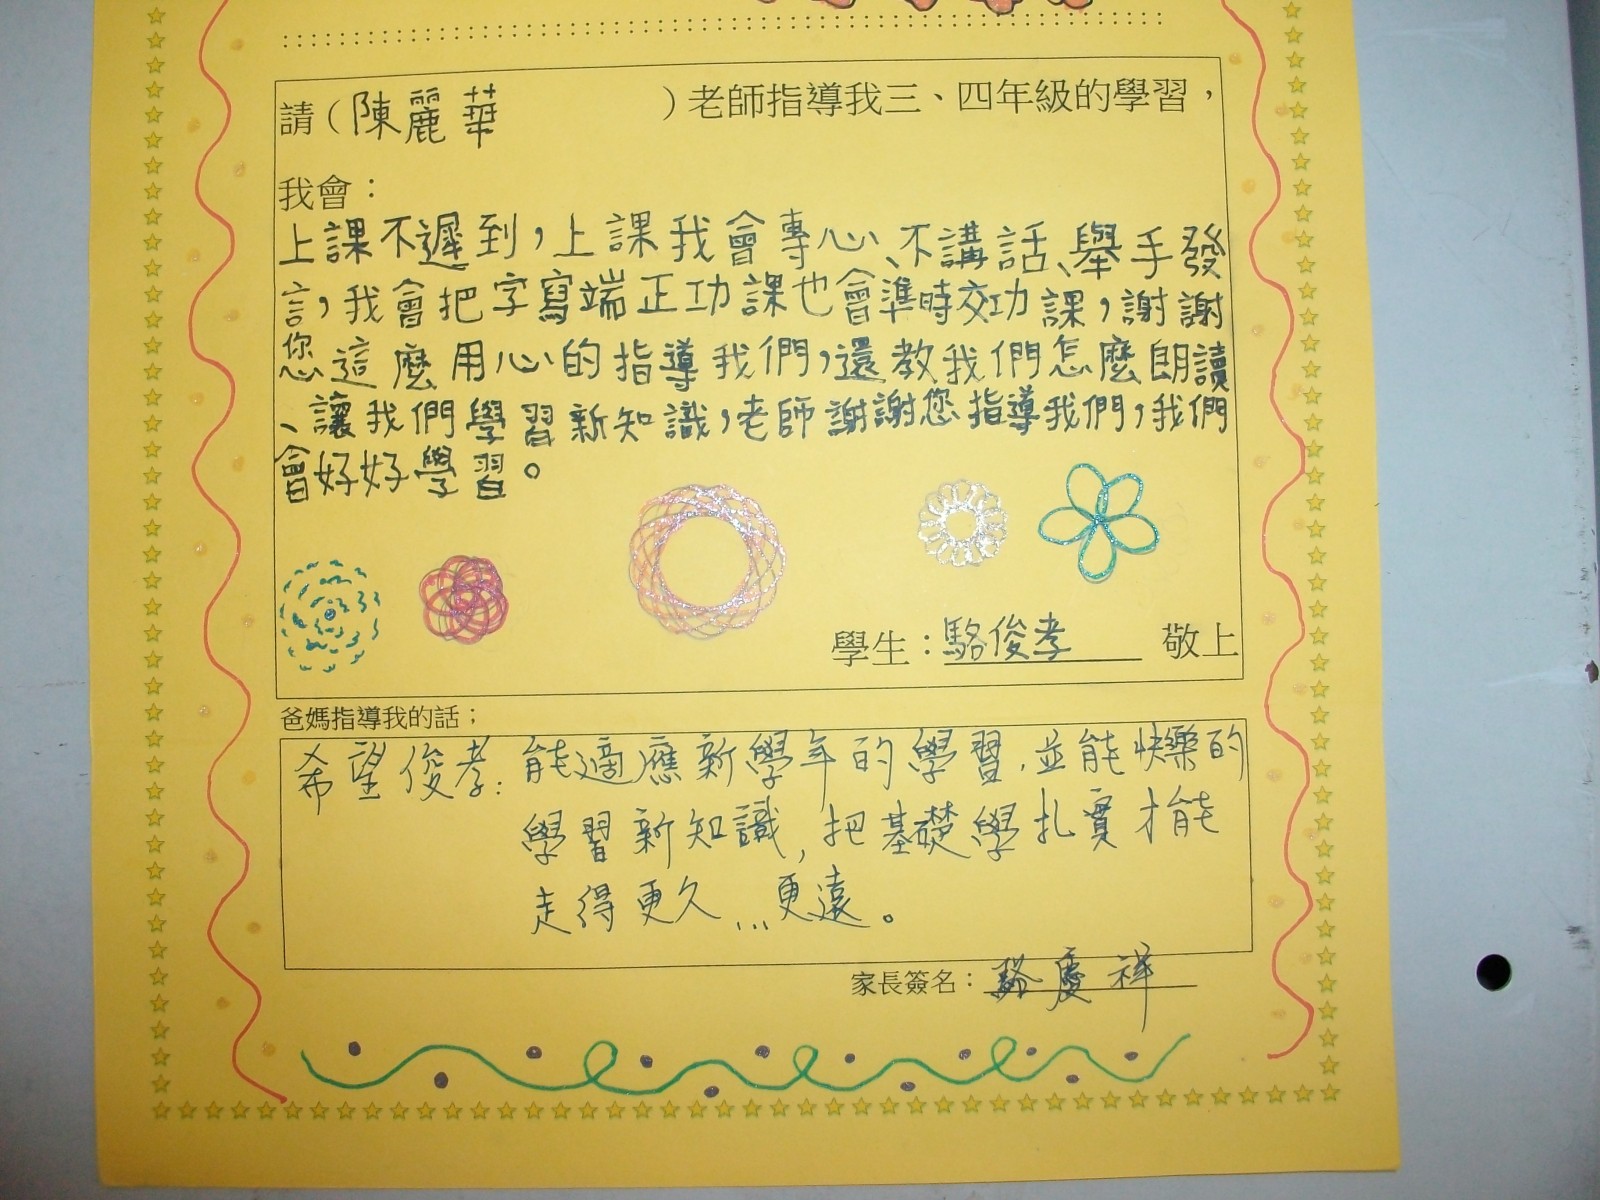 請(陳麗華)老師指導我三、四年級的學習，
我會：
上課不遲到，上課我會專心、不講話、舉手發
言，我會把字寫端正功課也會準時交功課，謝謝
您這麼用心的指導我們，還教我們怎麼朗讀
、讓我們學習新知識，老師謝謝您指導我們，我們
會好好學習。
學生：駱俊孝 敬上
爸媽指導我的話；
希望俊孝：能適應新學年的學習，並能快樂的
學習新知識，把基礎學扎實才能
走得更久...更遠。
家長簽名：駱慶祥